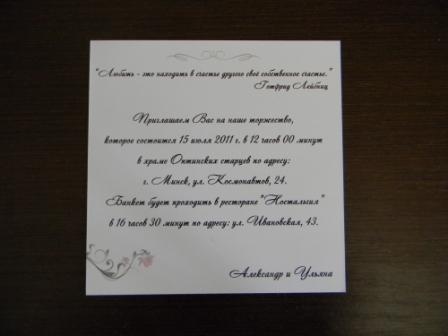 "Любить - это находить в счастье другого своё собственное счастье."
Готфрид Лейбниц
Приглашаем Вас на наше торжество,
которое состоится 15 июля 2011 г. в 12 часов 00 минут
в храме Оптинских старцев по адресу:
г. Минск, ул. Космонавтов, 24.
Банкет будет проходить в ресторане "Ностальгия"
в 16 часов 30 минут по адресу: ул. Ивановская, 43.
Александр и Ульяна